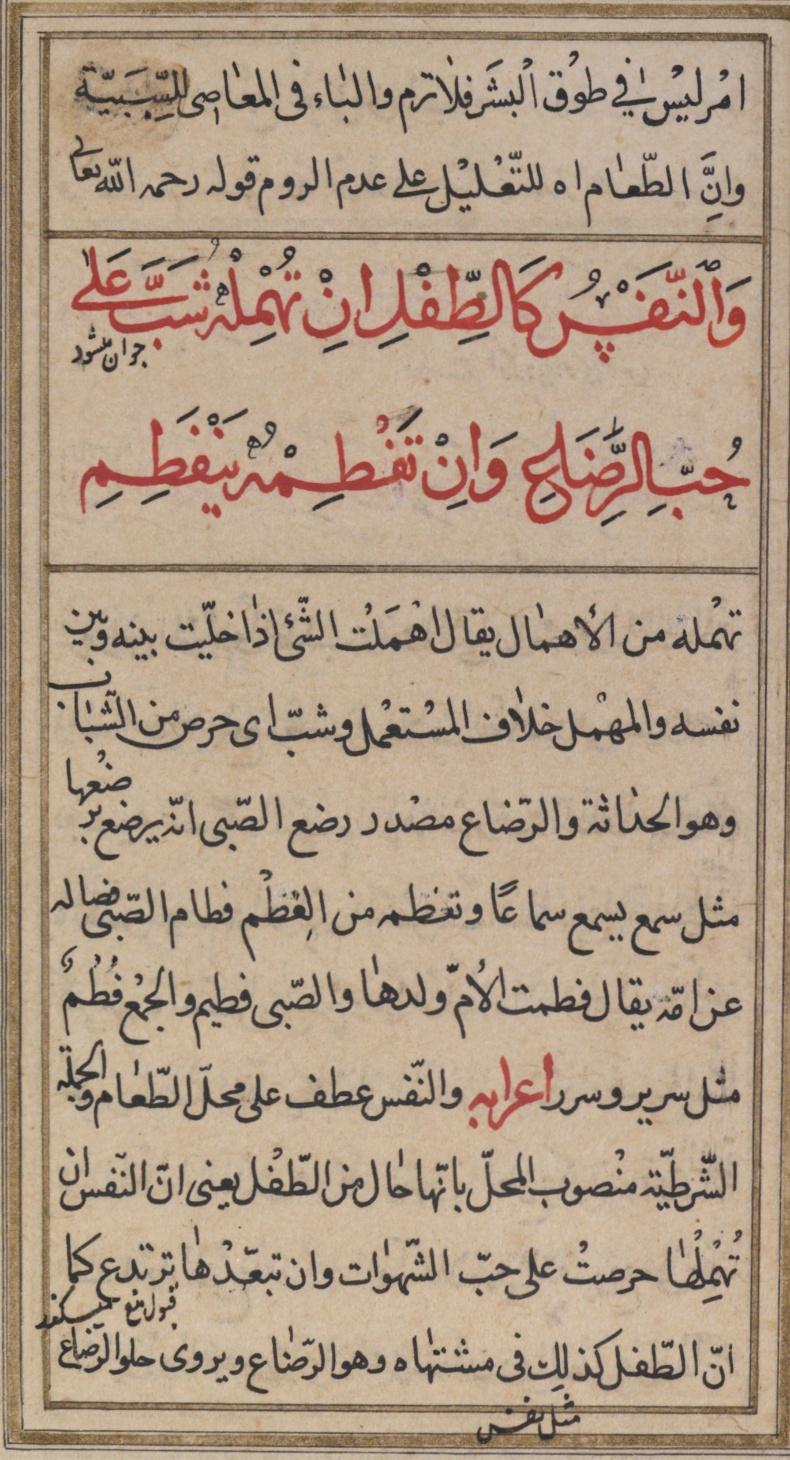 امْر ليْس في طوْق الْبشَر فلا ترم والباء فى المعاصى للسّببيّة
وانَّ الطّعام اه للتّعْليْل على عدم الروم قوله رحمه الله تعالى
وَالنَّفْسُ كَالطِّفْلِ اِنْ تُهْمِلْهُ شَبَّ عَلَى
جوان ميشود
حُبِّ الرَّضَاعِ وَاِنْ تَفْطِمْهُ يَنْفَطِمِ
تهْمله من الأهمال يقال اهْمَلْت الشّئ اذا خليّت بينه وبين
نفسه والمهْمل خلاف المسْتعْمل وشبّ اى حرص من الشّباب
وهو الحداثة والرّضاع مصْدر رضع الصّبى امّه يرضع
ضعْها
مثل سمع يسمع سماعًا وتفطمه من الفِطْم فطام الصّبى فصاله
عن امّه يقال فطمت الأمّ ولدها والصّبى فطيم والجمْع فُطُمٌ
مثل سرير وسرر اعرابه والنّفس عطف على محلّ الطّعام والجملة
الشّرطيّة منْصوب المحلّ بانّها حال من الطّفْل يعنى انّ النّفس ان
تُهْمِلْها حرصتْ على حبّ الشّهوات وان تبعّدْها ترتدع كما
قبول منع ميكند
انّ الطّفل كذلك فى مشتهاه وهو الرّضاع ويروى حلو الرّضاع
مثل نفس